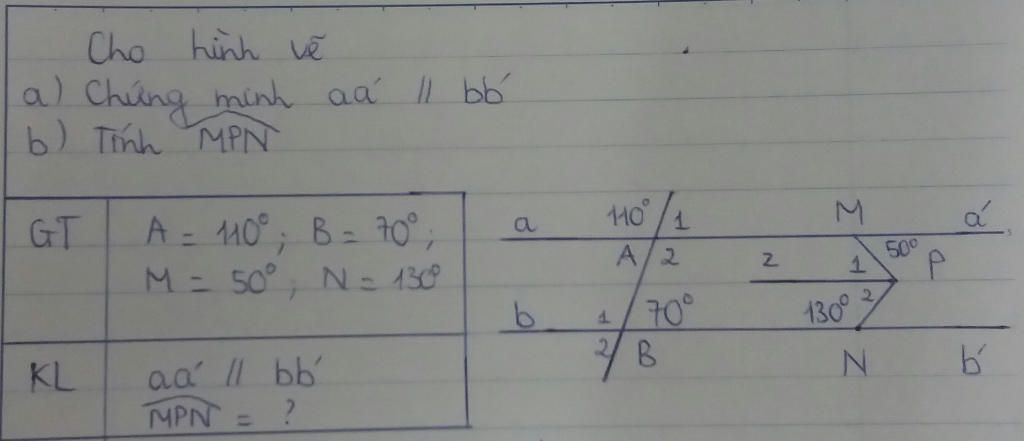 Cho hình vẽ
a) Chứng minh aa' // bb'
b) Tính MPN
GT
A = 110°; B = 70°;
M = 50°; N = 130°
KL
aa' // bb'
MPN = ?
a 110° 1 M a'
A 2 z 1 50° P
b 1 70° 130° 2
2 B N b'